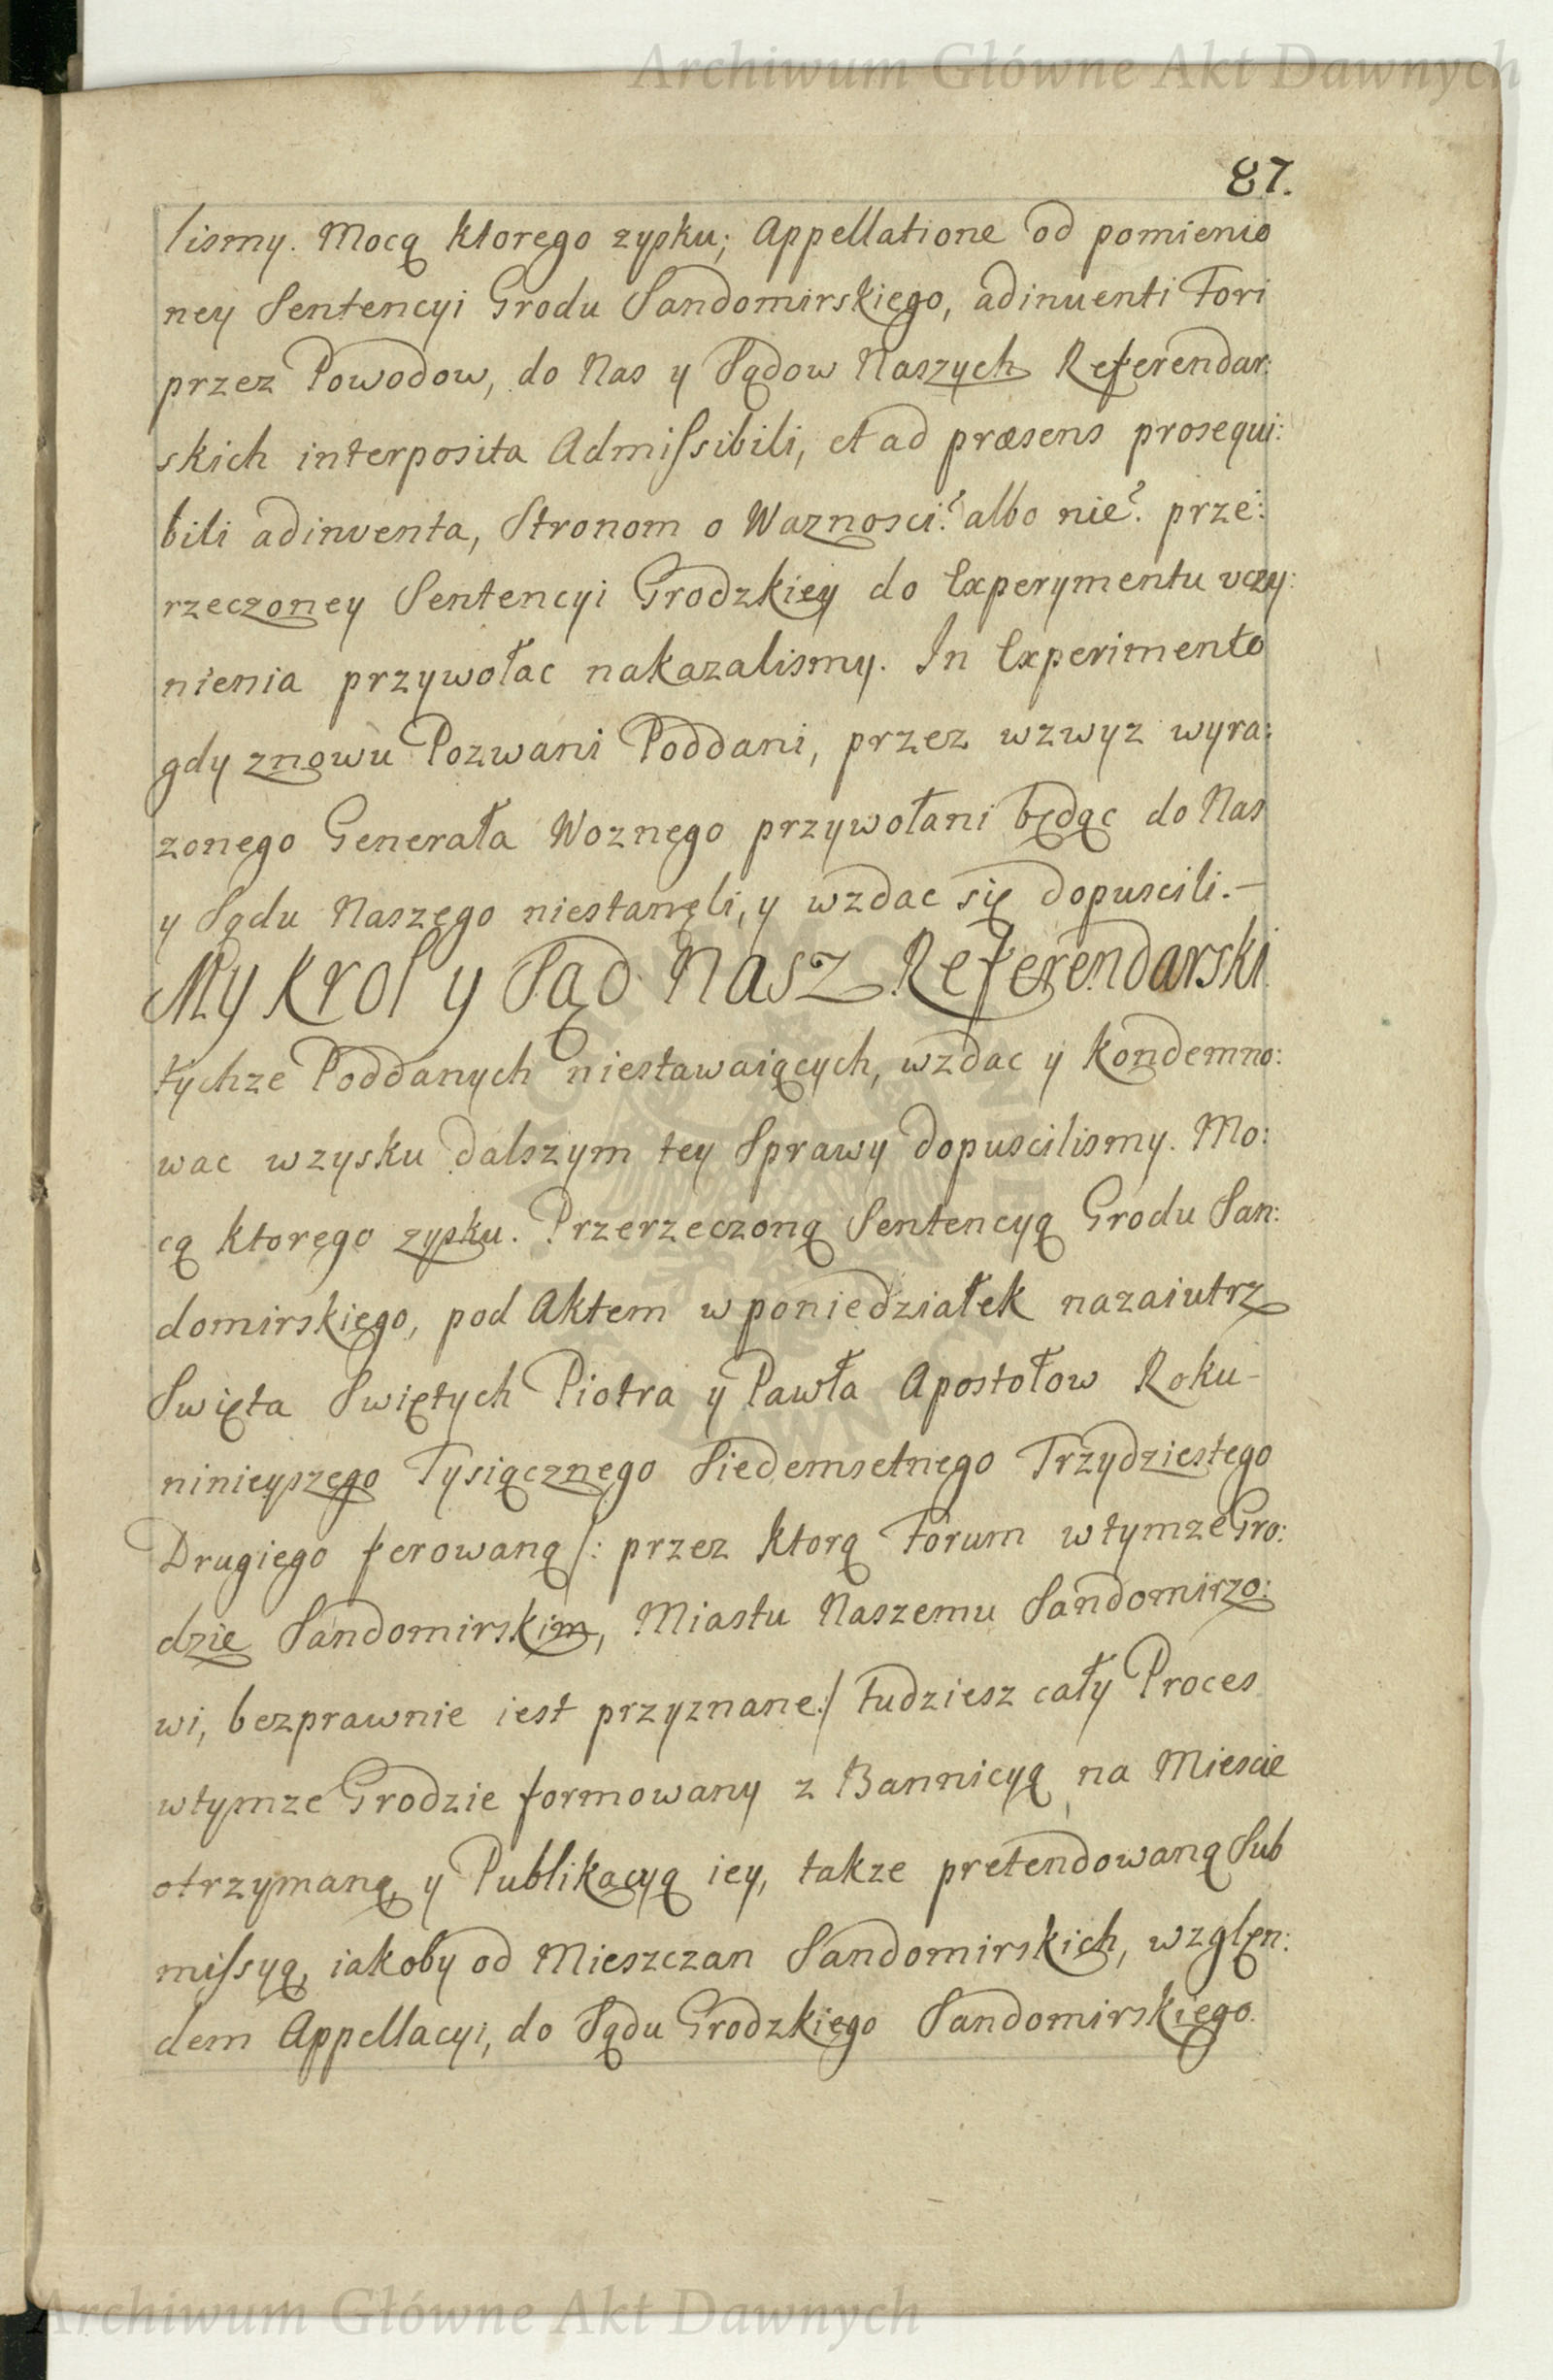 Archiwum Główne Akt Dawnych
87.
lismy. Mocą ktorego zysku; Appellatione od pomienio
ney Sentencyi Grodu Sandomirskiego, adinuenti Fori
przez Powodow, do Nas y Sądow Naszych Referendar:
skich interposita Admiſsibili, et ad præsens prosequi:
bili adinventa, Stronom o Waznosci? albo nie? prze:
rzeczoney Sentencyi Grodzkiey do Experymentu vczy:
nienia przywołac nakazalismy. In Experimento
gdy znowu Pozwani Poddani, przez wzwyz wyra:
zonego Generała Woznego przywołani będąc do Nas
y Sądu Naszego niestanęli, y wzdac się dopuscili.—
My Krol y Sąd Nasz Referendarski.
tychze Poddanych niestawaiących, wzdac y kondemno:
wac wzysku dalszym tey Sprawy dopuscilismy. Mo:
cą ktorego zysku. Przerzeczoną Sentencyą Grodu San:
domirskiego, pod Aktem w poniedziałek nazaiutrz
Swięta Swiętych Piotra y Pawła Apostołow Roku-
ninieyszego Tysiącznego Siedemsetnego Trzydziestego
Drugiego ferowaną /: przez ktorą Forum wtymze Gro:
dzie Sandomirskim, Miastu Naszemu Sandomirzo:
wi, bezprawnie iest przyznane:/ tudziesz cały Proces
wtymze Grodzie formowany z Bannicyą na Miescie
otrzymaną, y Publikacyą iey, takze pretendowaną Sub
miſsyą, iakoby od Mieszczan Sandomirskich, względ:
dem Appellacyi, do Sądu Grodzkiego Sandomirskiego.
Archiwum Główne Akt Dawnych